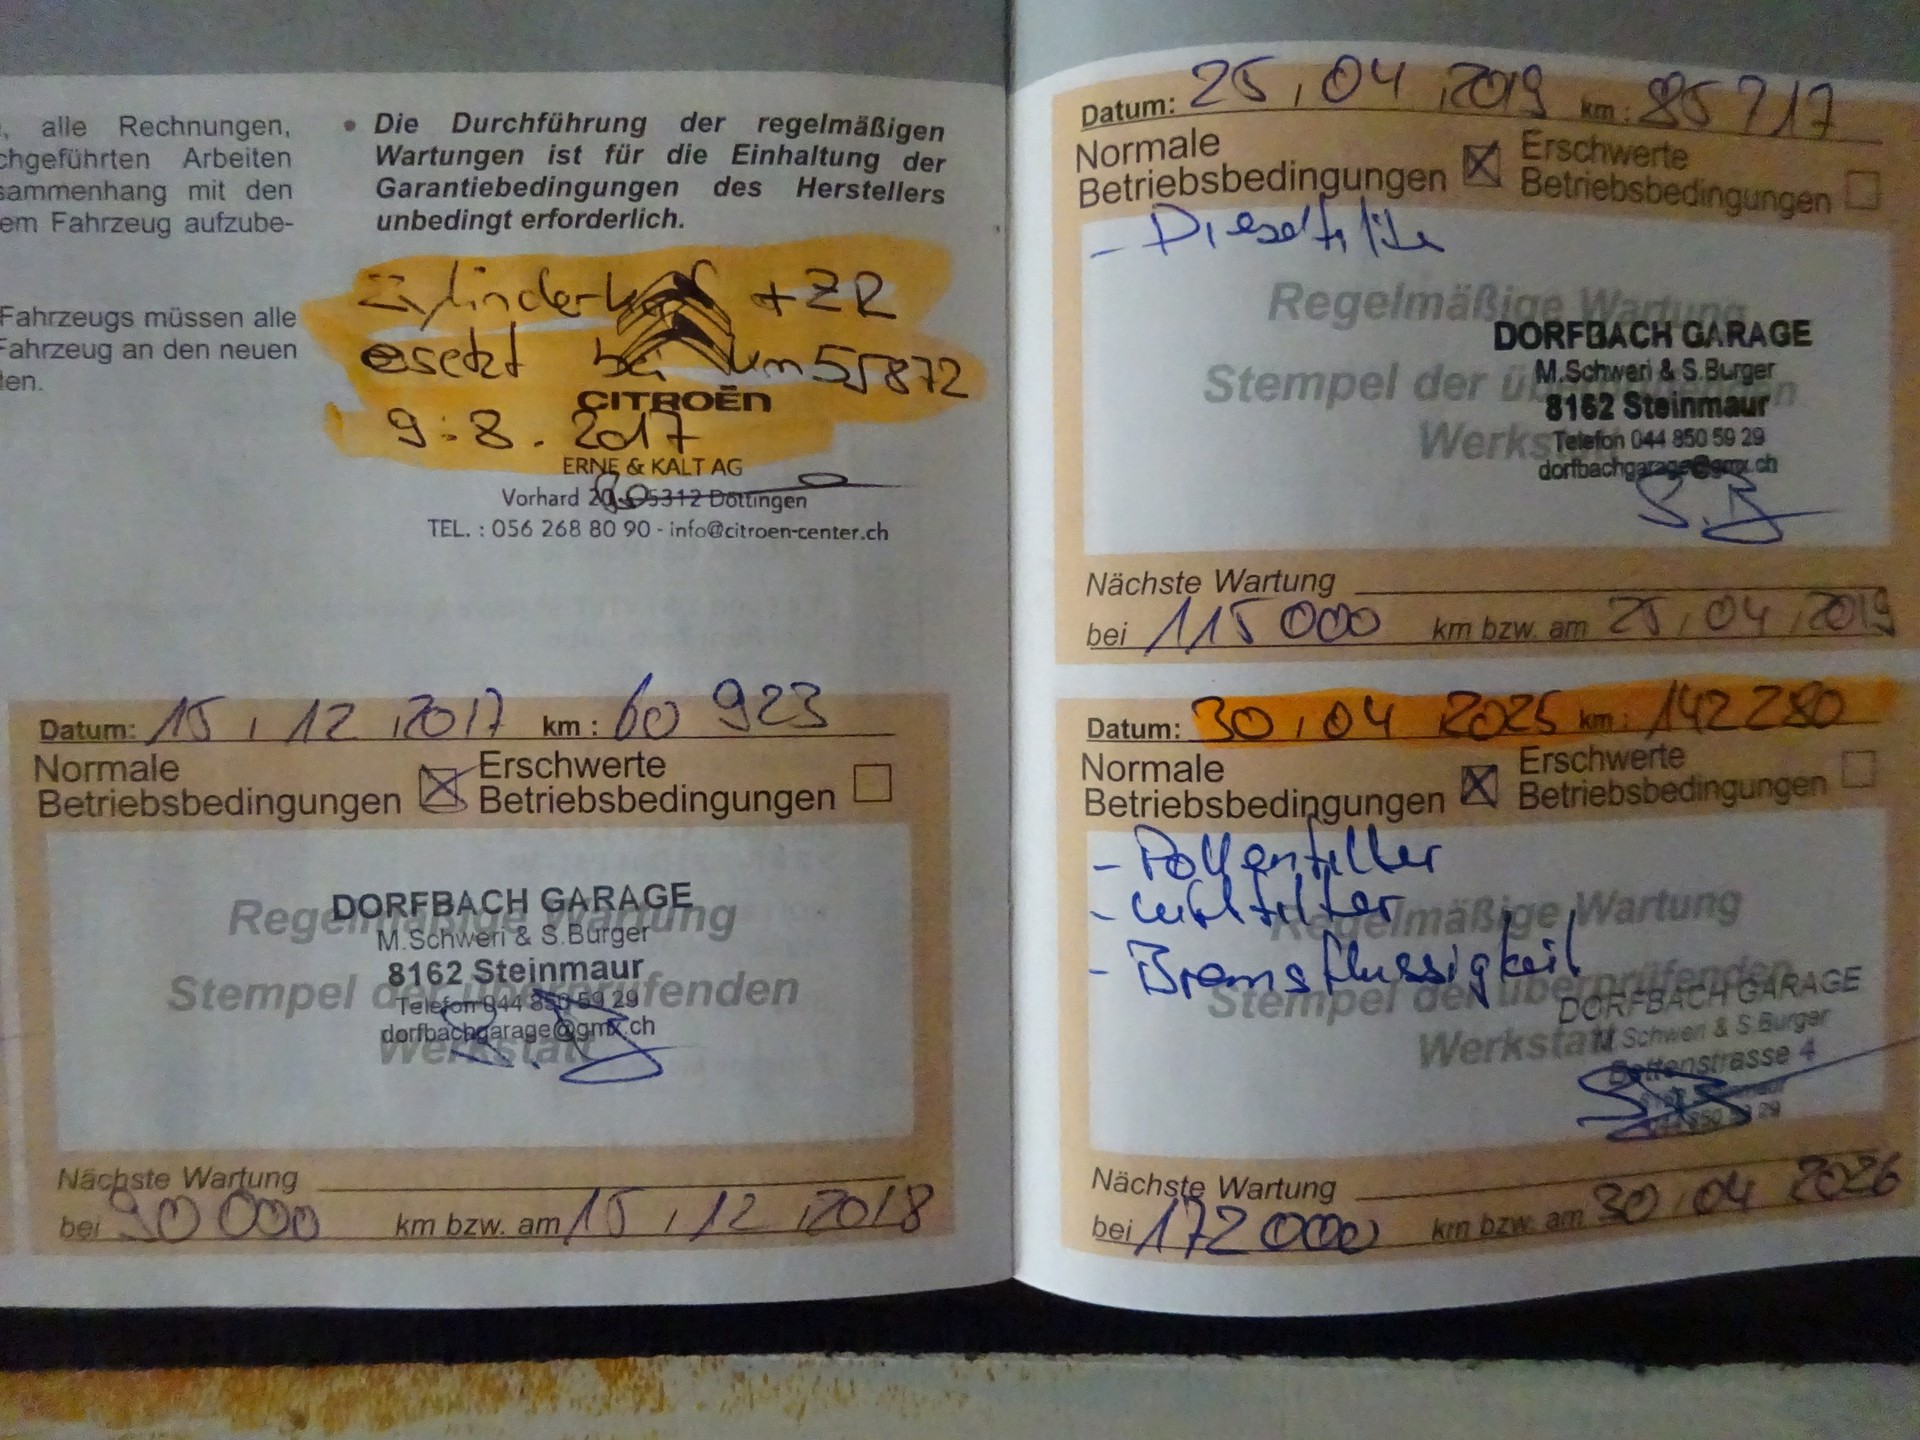 , alle Rechnungen,
chgeführten Arbeiten
sammenhang mit den
em Fahrzeug aufzube-
Fahrzeugs müssen alle
Fahrzeug an den neuen
len.
• Die Durchführung der regelmäßigen
Wartungen ist für die Einhaltung der
Garantiebedingungen des Herstellers
unbedingt erforderlich.
Zylinderkopf + ZR
esetzt bei km 55872
CITROËN
9.8.2017
ERNE & KALT AG
Vorhard 20 5312 Döttingen
TEL. : 056 268 80 90 - info@citroen-center.ch
Datum: 15.12.2017 km: 60 923
Normale Betriebsbedingungen ☒ Erschwerte Betriebsbedingungen ☐
Regelmäßige Wartung
Stempel der überprüfenden
Werkstatt
DORFBACH GARAGE
M.Schweri & S.Burger
8162 Steinmaur
Telefon 044 850 59 29
dorfbachgarage@gmx.ch
Nächste Wartung
bei 90 000 km bzw. am 15.12.2018
Datum: 25.04.2019 km: 85717
Normale Betriebsbedingungen ☒ Erschwerte Betriebsbedingungen ☐
- Dieselfilter
Regelmäßige Wartung
Stempel der überprüfenden
Werkstatt
DORFBACH GARAGE
M.Schweri & S.Burger
8162 Steinmaur
Telefon 044 850 59 29
dorfbachgarage@gmx.ch
S.B
Nächste Wartung
bei 115 000 km bzw. am 25.04.2019
Datum: 30.04.2025 km: 142280
Normale Betriebsbedingungen ☒ Erschwerte Betriebsbedingungen ☐
- Pollenfilter
- Luftfilter
- Bremsflussigkeit
Regelmäßige Wartung
Stempel der überprüfenden
Werkstatt
DORFBACH GARAGE
M Schweri & S.Burger
Bettenstrasse 4
Nächste Wartung
bei 172 000 km bzw. am 30.04 2026